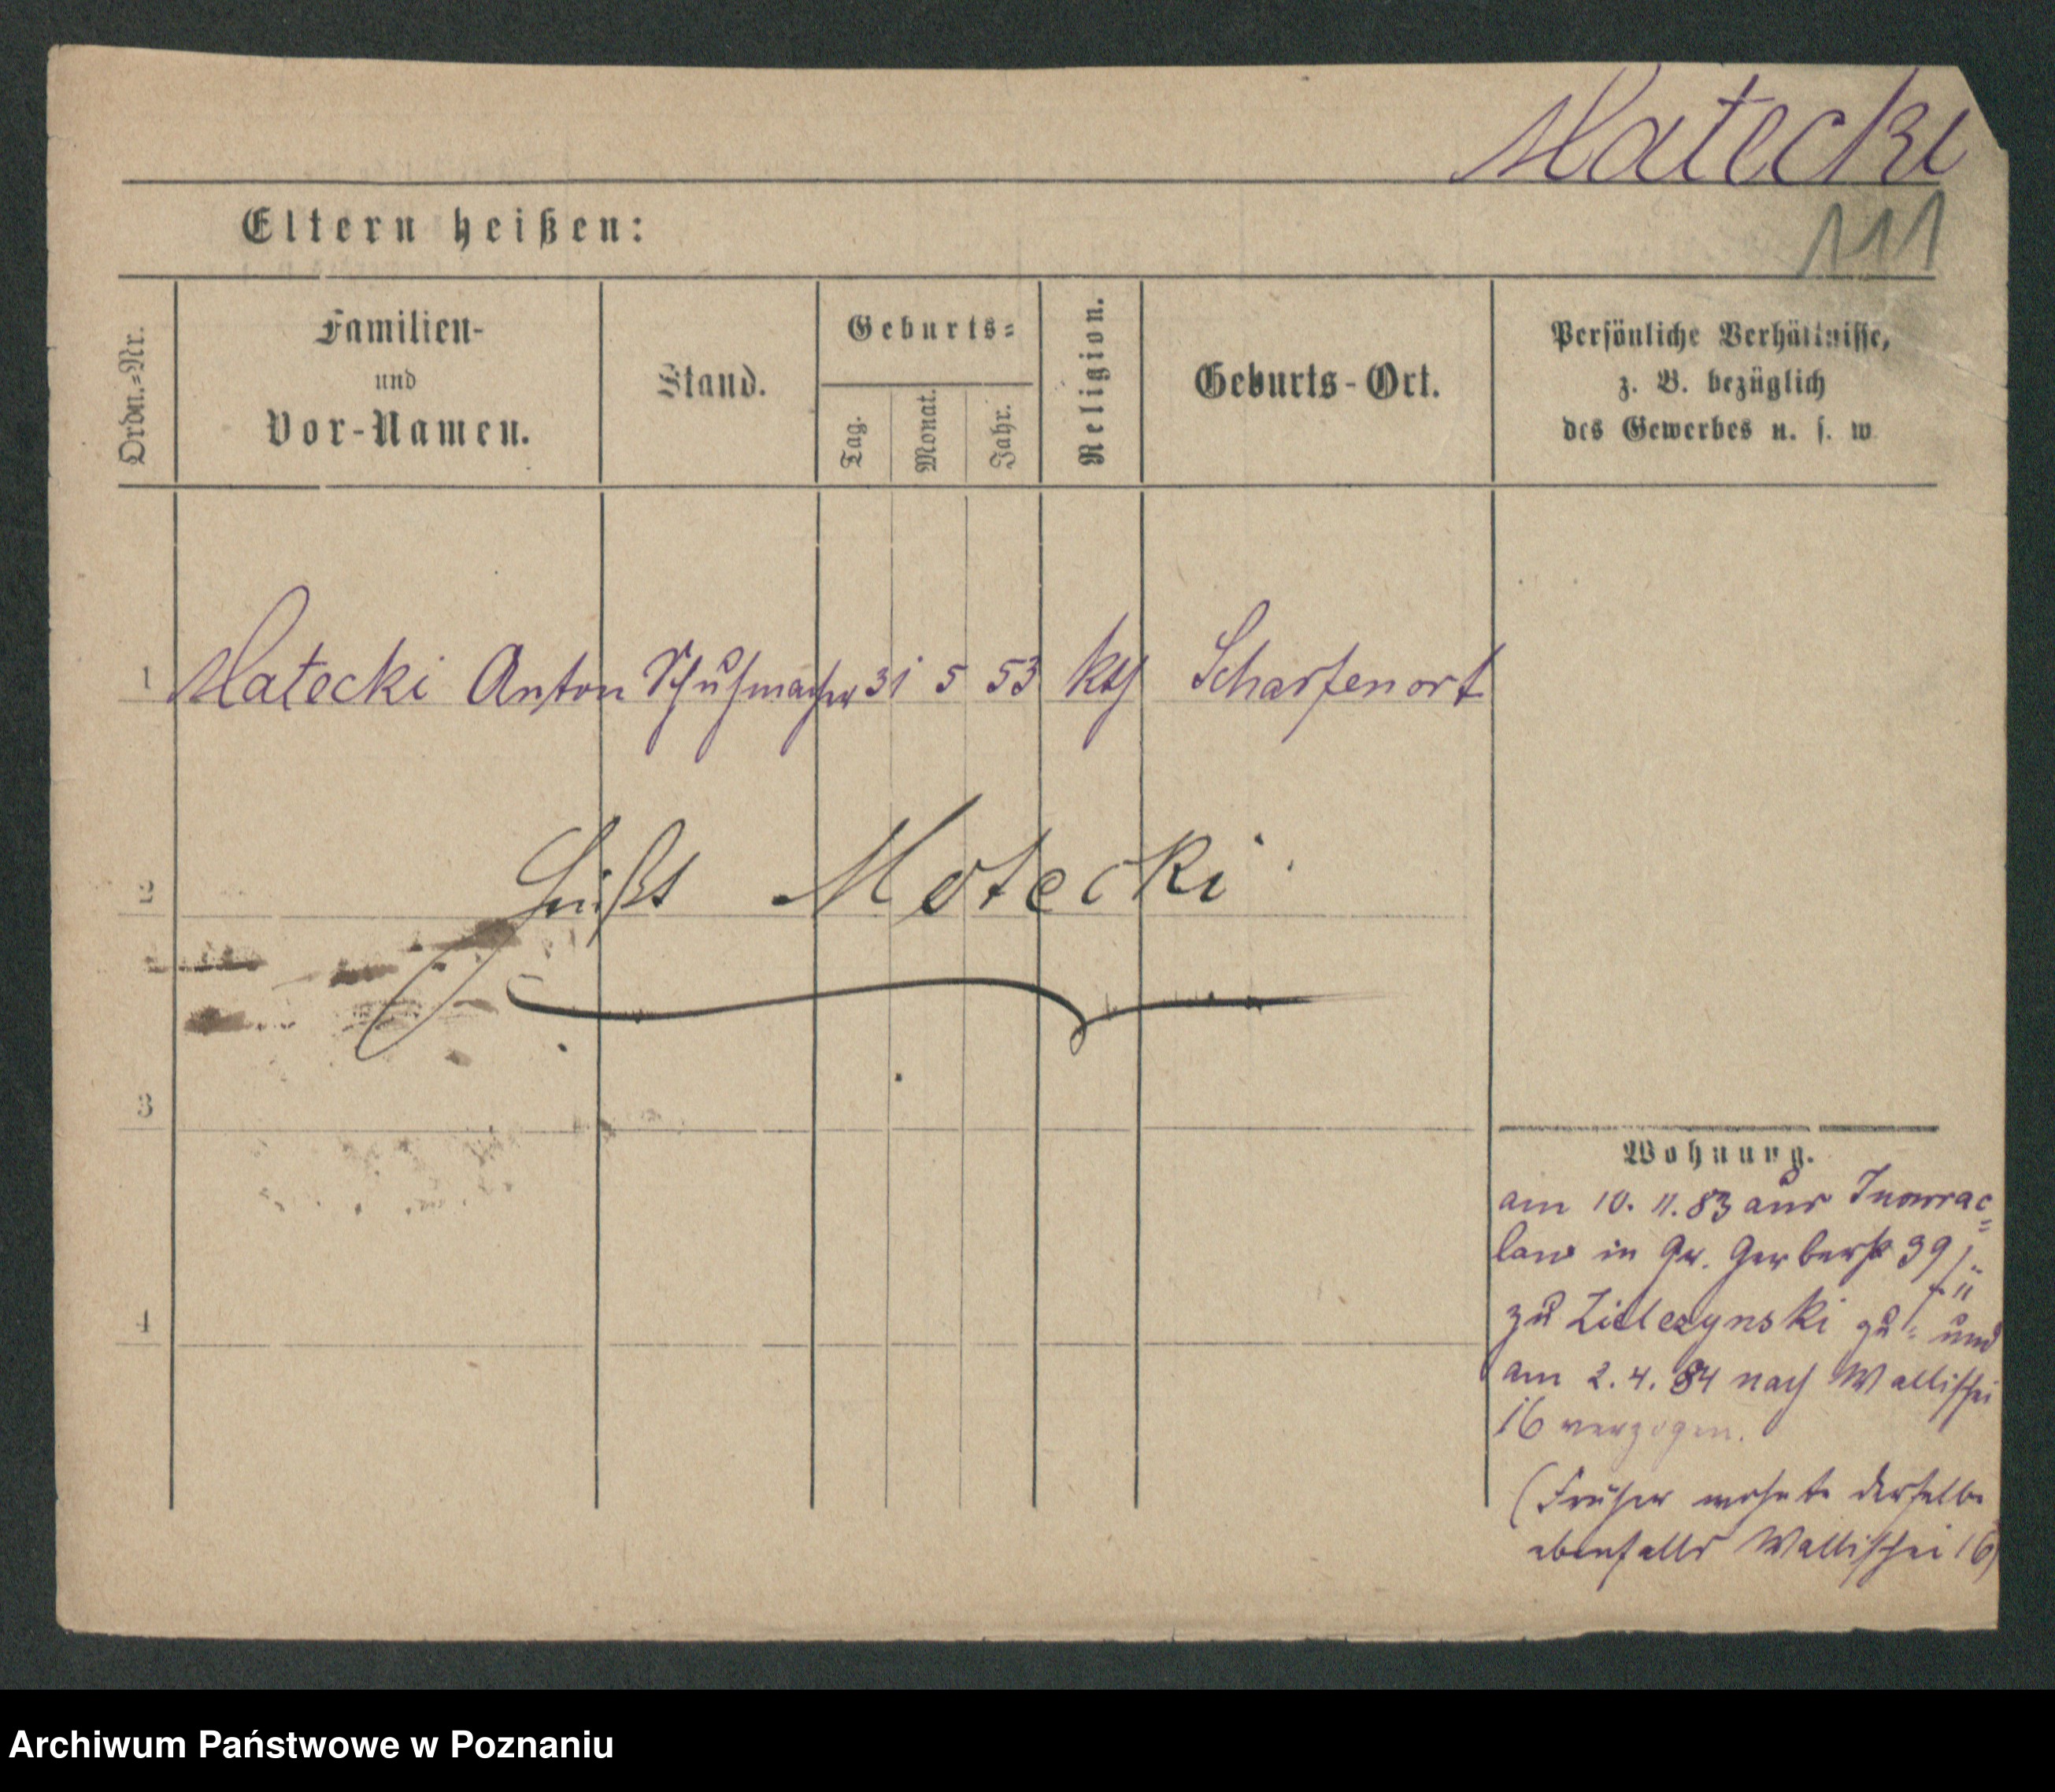 Matecki
111
Eltern heißen:
Ordn.=Nr.
Familien-
und
Vor-Namen.
Stand.
Geburts=
Tag.
Monat.
Jahr.
Religion.
Geburts-Ort.
Persönliche Verhältnisse,
z. B. bezüglich
des Gewerbes u. s. w
1 Matecki Anton Schuhmacher 31 5 53 kth Scharfenort
2
heißt Motecki
3
4
Wohnung.
am 10. 11. 83 aus Inowrac=
law in Gr. Gerberst 39
zu Zielezynski und
am 2. 4. 84 nach Wallischei
16 verzogen.
(Früher wohnte derselbe
ebenfalls Wallischei 16)
Archiwum Państwowe w Poznaniu